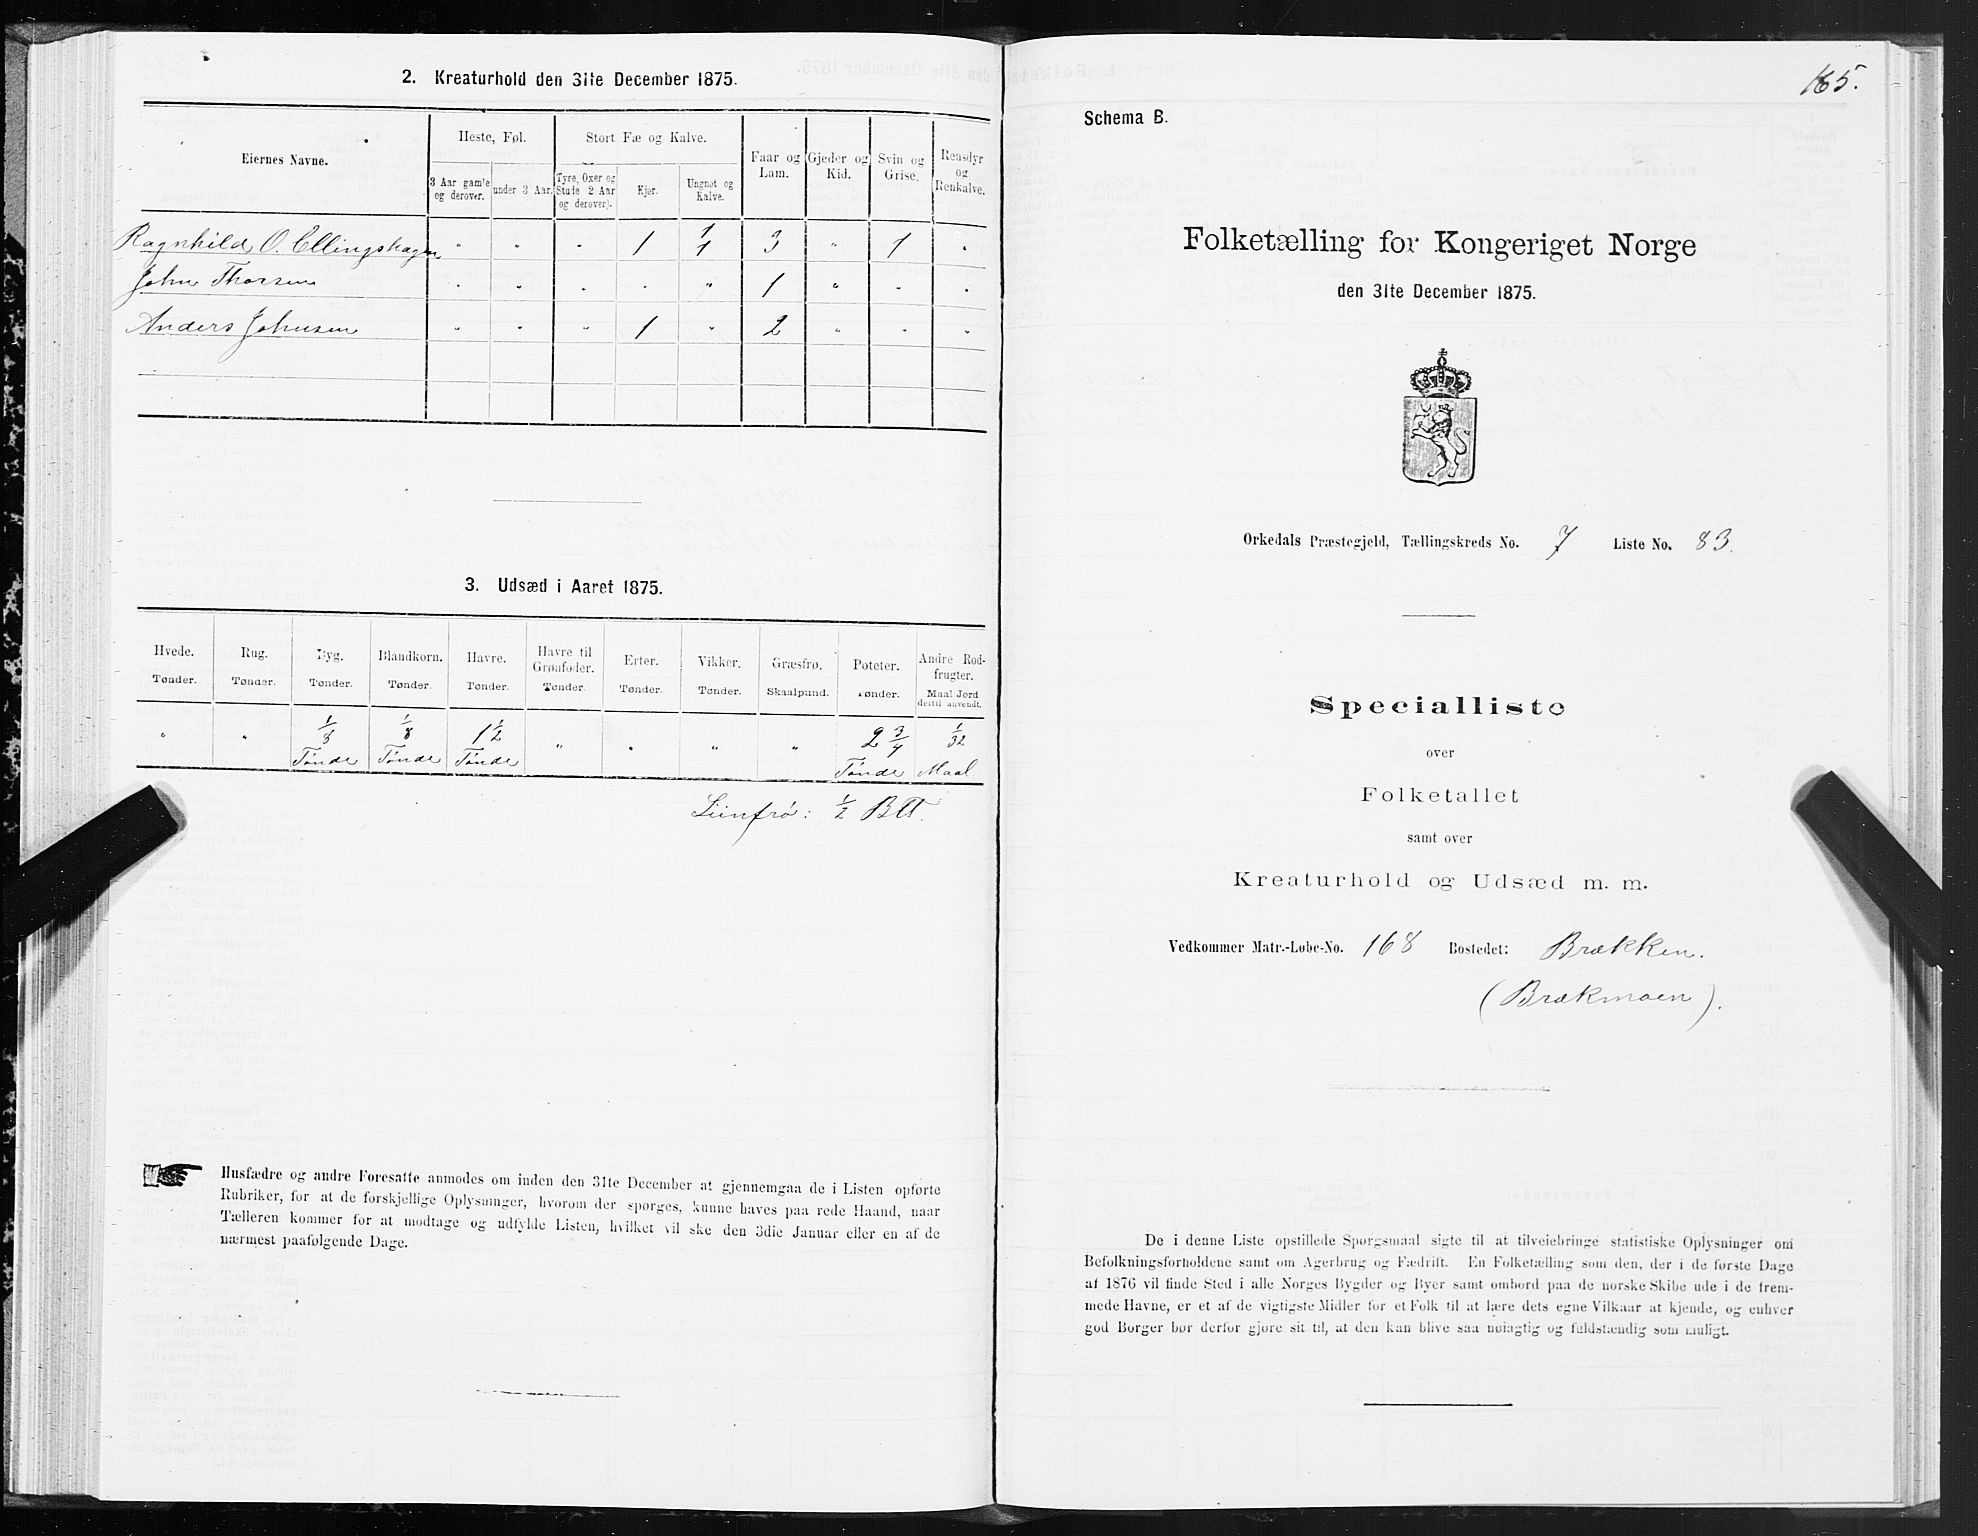 2. Kreaturhold den 31te December 1875.
Eiernes Navne.
Heste, Føl.
Stort Fæ og Kalve.
Faar og Lam.
Gjeder og Kid.
Svin og Grise.
Rensdyr og Renkalve.
3 Aar gamle og derover.
under 3 Aar.
Tyre, Oxer og Stude 2 Aar og derover).
Kjør.
Ungnøt og Kalve.
Ragnhild O. Ellingshagen " " " 1 1 1 3 " 1 "
John Thorsen " " " " " 1 " " "
Anders Johnsen " " " 1 " 2 " " "
3. Udsæd i Aaret 1875.
Hvede. Rug. Byg. Blandkorn. Havre. Havre til Grønfoder. Erter. Vikker. Græsfrø. Poteter. Andre Rodfrugter.
Tønder. Tønder. Tønder. Tønder. Tønder. Tønder. Tønder. Tønder. Skaalpund. Tønder. Maal Jord dertil anvendt.
" " 1/8 1/8 1 1/2 " " " " 2 3/4 1/32
Tønde Tønde Tønde Tønde Maal
Liinfrø: 1/2
Husfædre og andre Foresatte anmodes om inden den 31te December at gjennemgaa de i Listen opførte
Rubriker, for at de forskjellige Oplysninger, hvorom der spørges, kunne haves paa rede Haand, naar
Tælleren kommer for at modtage og udfylde Listen, hvilket vil ske den 3die Januar eller en af de
nærmest paafølgende Dage.
165.
Schema B.
Folketælling for Kongeriget Norge
den 31te December 1875.
Orkedals Præstegjeld, Tællingskreds No. 7 Liste No. 83.
Specialliste
over
Folketallet
samt over
Kreaturhold og Udsæd m. m.
Vedkommer Matr.-Løbe-No. 168 Bostedet: Brækken.
(Brækmoen).
De i denne Liste opstillede Spørgsmaal sigte til at tilveiebringe statistiske Oplysninger om
Befolkningsforholdene samt om Agerbrug og Fædrift. En Folketælling som den, der i de første Dage
af 1876 vil finde Sted i alle Norges Bygder og Byer samt ombord paa de norske Skibe ude i de frem-
mede Havne, er et af de vigtigste Midler for et Folk til at lære dets egne Vilkaar at kjende, og enhver
god Borger bør derfor gjøre sit til, at den kan blive saa nøiagtig og fuldstændig som muligt.